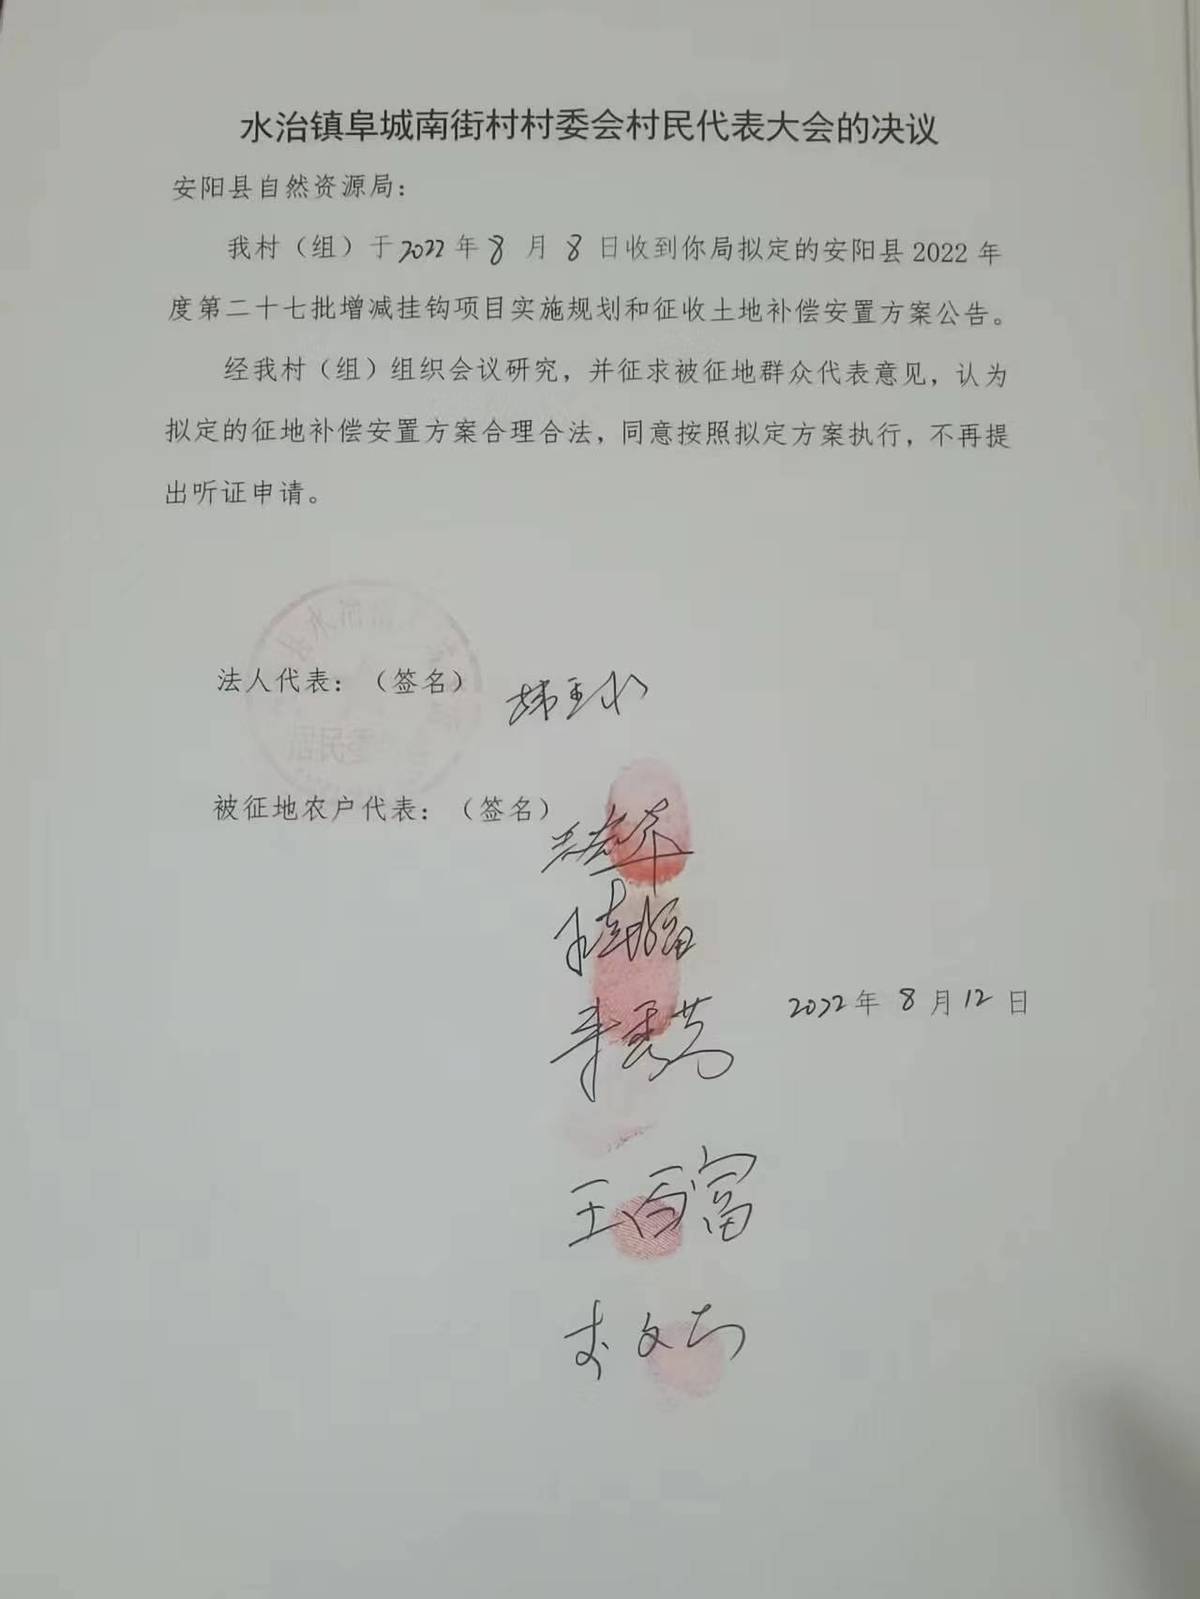 水治镇阜城南街村村委会村民代表大会的决议
安阳县自然资源局：
我村（组）于2022年8月8日收到你局拟定的安阳县2022年
度第二十七批增减挂钩项目实施规划和征收土地补偿安置方案公告。
经我村（组）组织会议研究，并征求被征地群众代表意见，认为
拟定的征地补偿安置方案合理合法，同意按照拟定方案执行，不再提
出听证申请。
法人代表：（签名）
被征地农户代表：（签名）
2022年8月12日
王百富